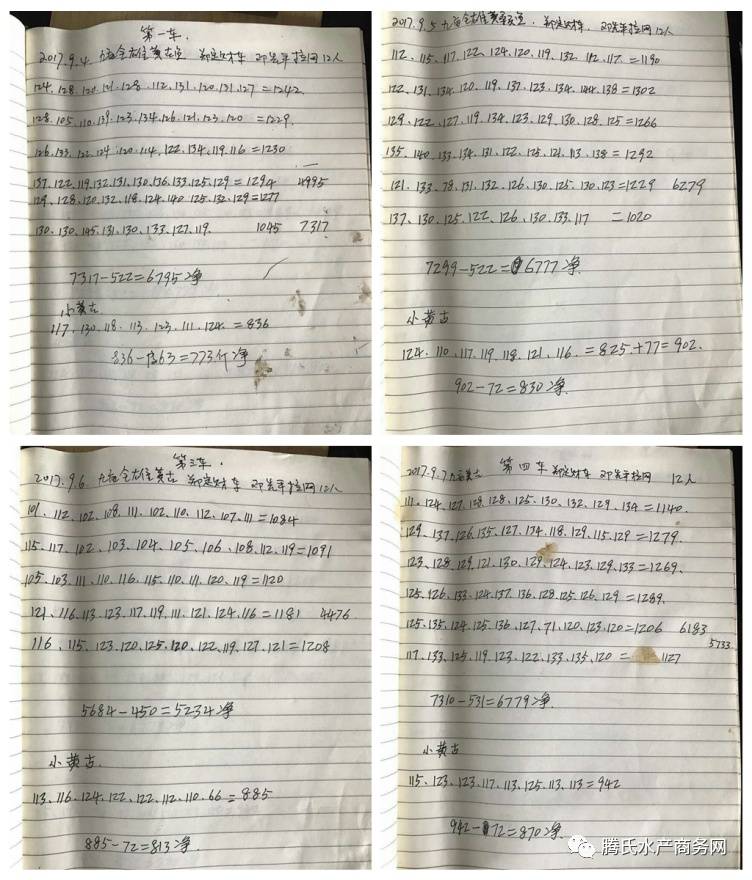 第一车.
2017.9.4. 全雄黄 车 拉网12人
124.128.120.121.128.112.131.120.131.127=1242
128.105.110.139.123.134.126.121.123.120 =1229.
126.133.122.124.120.114.122.134.119.116=1230
137.122.119.132.131.130.136.133.125.129=1294 4995
129.128.120.132.118.124.140.125.132.129=1277
130.130.145.131.130.133.127.119. 1045 7317
7317-522=6795净
小黄古
117.130.118.113.123.111.124.=836
836-63=773斤净
2017.9.5 全雄黄 车. 拉网12人
112.115.117.122.124.120.119.132.112.117.=1190
122.131.134.120.119.137.123.134.144.138=1302
129.122.127.119.134.123.129.130.128.125=1266
135.140.133.134.131.122.125.121.113.138=1292
121.133.78.131.132.126.130.125.130.123=1229 6279
137.130.125.122.126.130.133.117 =1020
7299-522=6777净.
小黄古
124.110.117.119.118.121.116.=825.+77=902.
902-72=830净.
第三车.
2017.9.6. 全雄黄古 车 拉网12人
101.112.102.108.111.102.110.112.107.111=1084
115.117.102.103.104.105.106.108.112.119=1091
105.103.111.110.116.115.110.111.120.119=1120
121.116.113.123.117.119.111.121.124.116=1181 4476
116.115.123.120.125.120.122.119.127.121=1208
5684-450=5234净
小黄古.
113.116.124.122.122.112.110.66=885
885-72=813净.
2017.9.7 黄古 第四车 车 拉网 12人
111.124.127.128.128.125.130.132.129.134=1140.
129.137.126.135.127.134.118.129.115.129=1279.
123.128.129.121.130.129.124.123.129.133=1269.
125.126.133.124.137.136.128.125.126.129=1289.
125.135.124.125.136.127.71.120.123.120=1206 6183
5733
117.133.125.119.123.122.133.135.120= 1127
7310-531=6779净.
小黄古
115.123.123.117.113.125.113.113=942
942-72=870净.
腾氏水产商务网